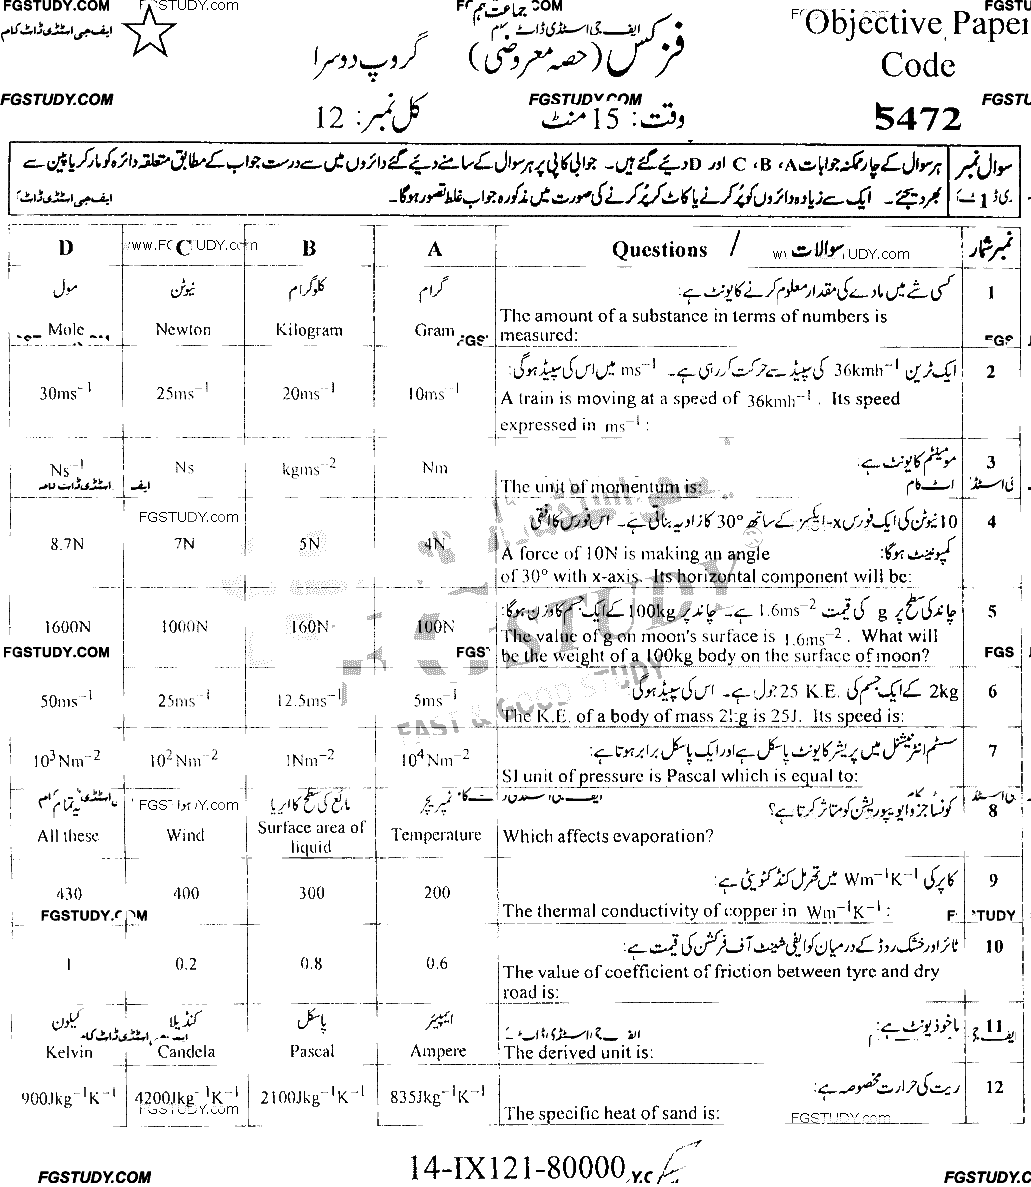 FGSTUDY.COM
FGSTUDY.com
جماعت نہم
Objective Paper
ایف جی اسٹڈی ڈاٹ کام
گروپ دوسرا
فزکس (حصہ معروضی)
Code
FGSTUDY.COM
FGSTUDY.COM
کل نمبر: 12
وقت: 15 منٹ
5472
سوال نمبر 1
ہر سوال کے چار ممکنہ جوابات A، B، C اور D دیئے گئے ہیں۔ جوابی کاپی پر ہر سوال کے سامنے دیئے گئے دائروں میں سے درست جواب کے مطابق متعلقہ دائرہ کو مارکر یا پین سے
بھر دیجئے۔ ایک سے زیادہ دائروں کو پُر کرنے یا کاٹ کر پُر کرنے کی صورت میں مذکورہ جواب غلط تصور ہوگا۔
D C B A Questions / سوالات نمبر شمار
مول نیوٹن کلوگرام گرام کسی شے میں مادے کی مقدار معلوم کرنے کا یونٹ ہے: 1
Mole Newton Kilogram Gram The amount of a substance in terms of numbers is
measured:
ایک ٹرین 36kmh⁻¹ کی سپیڈ سے حرکت کر رہی ہے۔ ms⁻¹ میں اس کی سپیڈ ہوگی: 2
30ms⁻¹ 25ms⁻¹ 20ms⁻¹ 10ms⁻¹ A train is moving at a speed of 36kmh⁻¹. Its speed
expressed in ms⁻¹:
مومینٹم کا یونٹ ہے: 3
Ns⁻¹ Ns kgms⁻² Nm The unit of momentum is:
10 نیوٹن کی ایک فورس x-ایکسز کے ساتھ 30° کا زاویہ بناتی ہے۔ اس فورس کا افقی 4
کمپوننٹ ہوگا:
8.7N 7N 5N 4N A force of 10N is making an angle
of 30° with x-axis. Its horizontal component will be:
چاند کی سطح پر g کی قیمت 1.6ms⁻² ہے۔ چاند پر 100kg کے ایک جسم کا وزن ہوگا: 5
1600N 1000N 160N 100N The value of g on moon's surface is 1.6ms⁻². What will
be the weight of a 100kg body on the surface of moon?
2kg کے ایک جسم کی K.E. 25 جول ہے۔ اس کی سپیڈ ہوگی 6
50ms⁻¹ 25ms⁻¹ 12.5ms⁻¹ 5ms⁻¹ The K.E. of a body of mass 2kg is 25J. Its speed is:
سسٹم انٹرنیشنل میں پریشر کا یونٹ پاسکل ہے اور ایک پاسکل برابر ہوتا ہے: 7
10³Nm⁻² 10²Nm⁻² 1Nm⁻² 10⁴Nm⁻² SI unit of pressure is Pascal which is equal to:
یہ تمام ہوا مائع کی سطح کا ایریا ٹمپریچر کونسا جزو ایویپوریشن کو متاثر کرتا ہے؟ 8
All these Wind Surface area of liquid Temperature Which affects evaporation?
کاپر کی Wm⁻¹K⁻¹ میں تھرمل کنڈکٹیویٹی ہے: 9
430 400 300 200 The thermal conductivity of copper in Wm⁻¹K⁻¹:
ٹائر اور خشک روڈ کے درمیان کوایفی شینٹ آف فرکشن کی قیمت ہے: 10
1 0.2 0.8 0.6 The value of coefficient of friction between tyre and dry
road is:
کیلون کنڈیلا پاسکل ایمپیئر ماخوذ یونٹ ہے: 11
Kelvin Candela Pascal Ampere The derived unit is:
ریت کی حرارت مخصوصہ ہے: 12
900Jkg⁻¹K⁻¹ 4200Jkg⁻¹K⁻¹ 2100Jkg⁻¹K⁻¹ 835Jkg⁻¹K⁻¹ The specific heat of sand is:
FGSTUDY.com
14-IX121-80000
FGSTUDY.COM